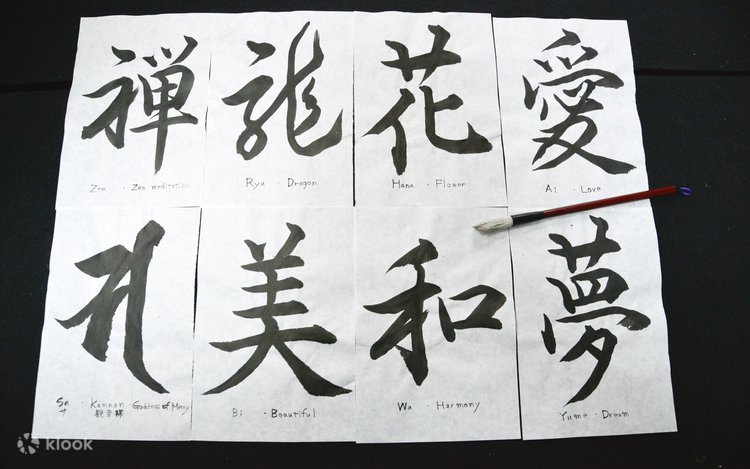 禅
Zen · Zen meditation
龍
Ryu · Dragon
花
Hana · Flower
愛
Ai · Love
𑖭
Sa · Kannon · Goddess of Mercy
サ 観音様
美
Bi · Beautiful
和
Wa · Harmony
夢
Yume · Dream
klook